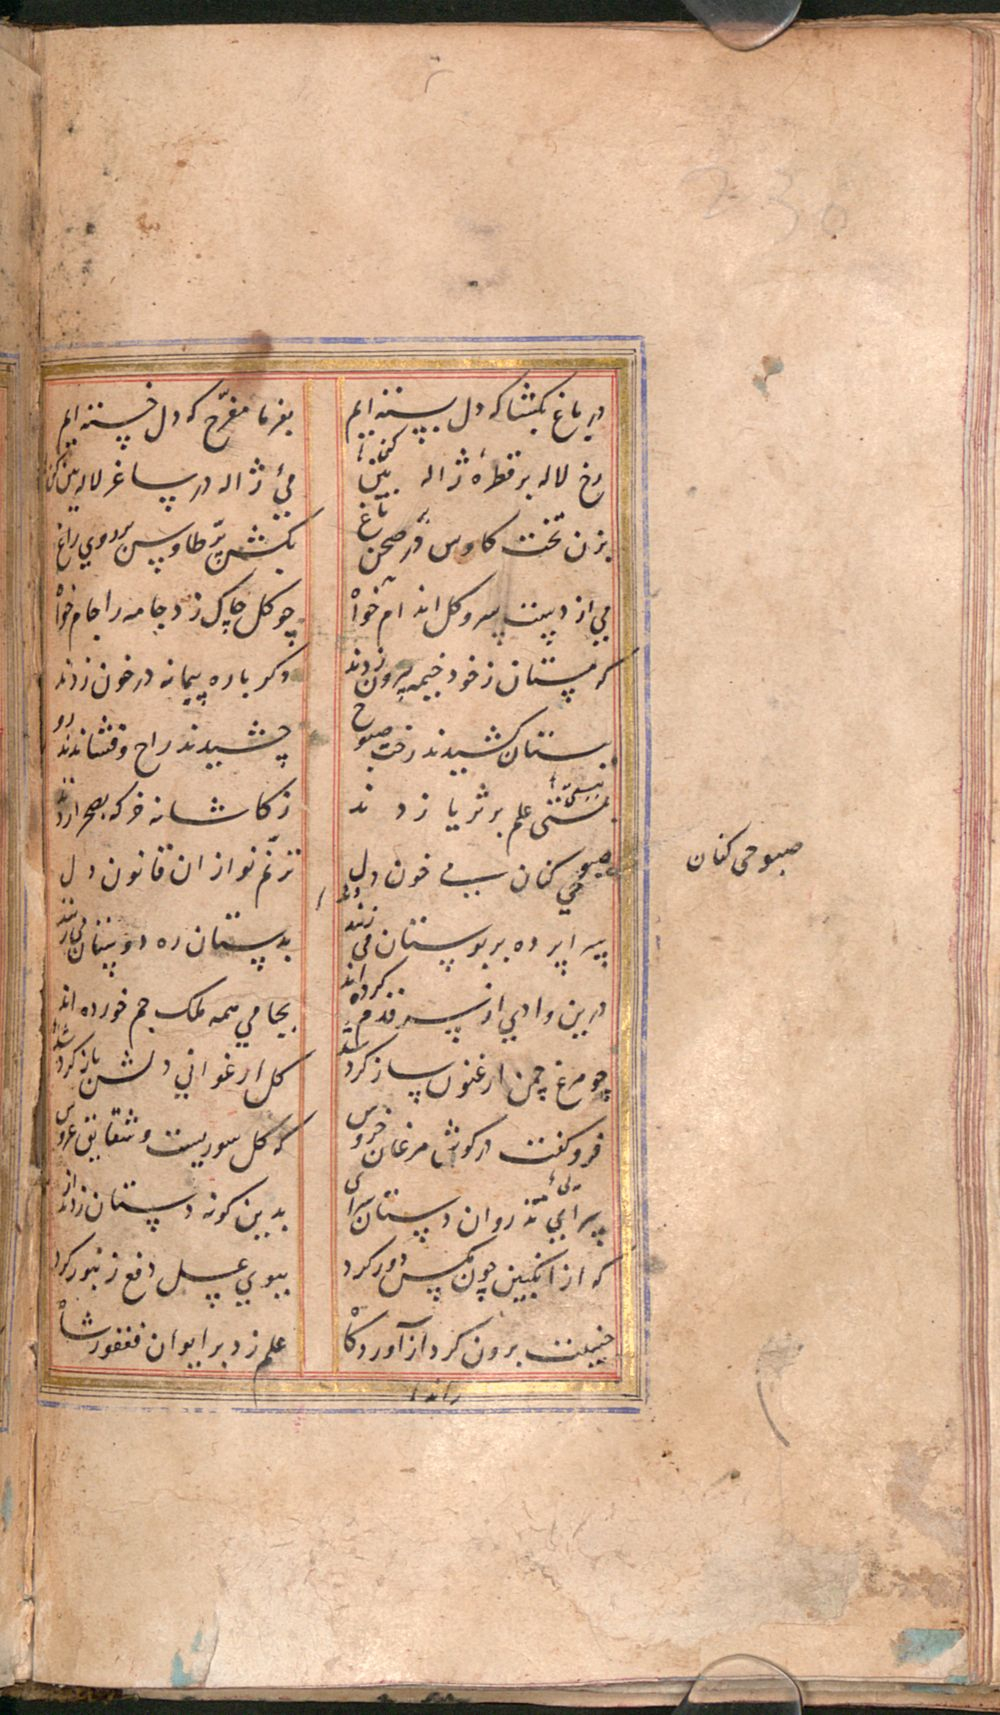 در باغ بکشا که دل بسته ایم
بفرما مفرّح که دل خسته ایم
رخ لاله بر قطرهٔ ژاله بین
میٔ ژاله در ساغر لاله بین
بزن تخت کاوس در صحن باغ
بکش پرّ طاوس بر روی راغ
می از دست سرو کل اندام خواه
چو کل چاک زد جامه را جام خواه
که مستان ز خود خیمه بیرون زدند
دکر باره پیمانه در خون زدند
ببستان کشیدند رخت صبوح
چشیدند راح و فشاندند روح
بمستی علم بر ثریا زدند
ز کاشانه خرکه بصحرا زدند
صبوحی کنان بی می خون دل
ترنّم نواز ان قانون دل
صبوحی کنان
سراپرده بر بوستان می زنند
بدستان ره دوستان می زنند
درین وادی از سر قدم کرده اند
بجامی همه ملک جم خورده اند
چو مرغ چمن ارغنون ساز کرد
کل ارغوانی دلش باز کرد
فرو کفت در کوش مرغان خروس
که کل سوریست و شقایق عروس
تذروان دستان سرای
بدین کونه دستان زدند از
که از انکبین چون مکس دور کرد
ببوی عسل دفع زنبور کرد
خیبت برون کرد از آوردکاه
علم زد بر ایوان فغفور شاه
راند